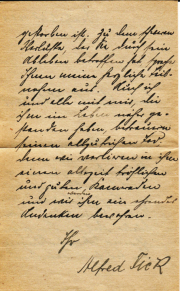 gestorben ist. Zu dem schweren
Verluste, der Sie durch sein
Ableben betroffen hat, spreche
ihnen meine herzliche Teil-
nahme aus. Auch ich
und alle mit mir, die
ihm im Leben nahe ge-
standen haben, betrauern
seinen allzufrühen Tod,
denn wir verlieren in ihm
einen allezeit fröhlichen
und guten Kameraden
und werden ihm ein ehrendes
Andenken bewahren.
Ihr
Alfred Fick